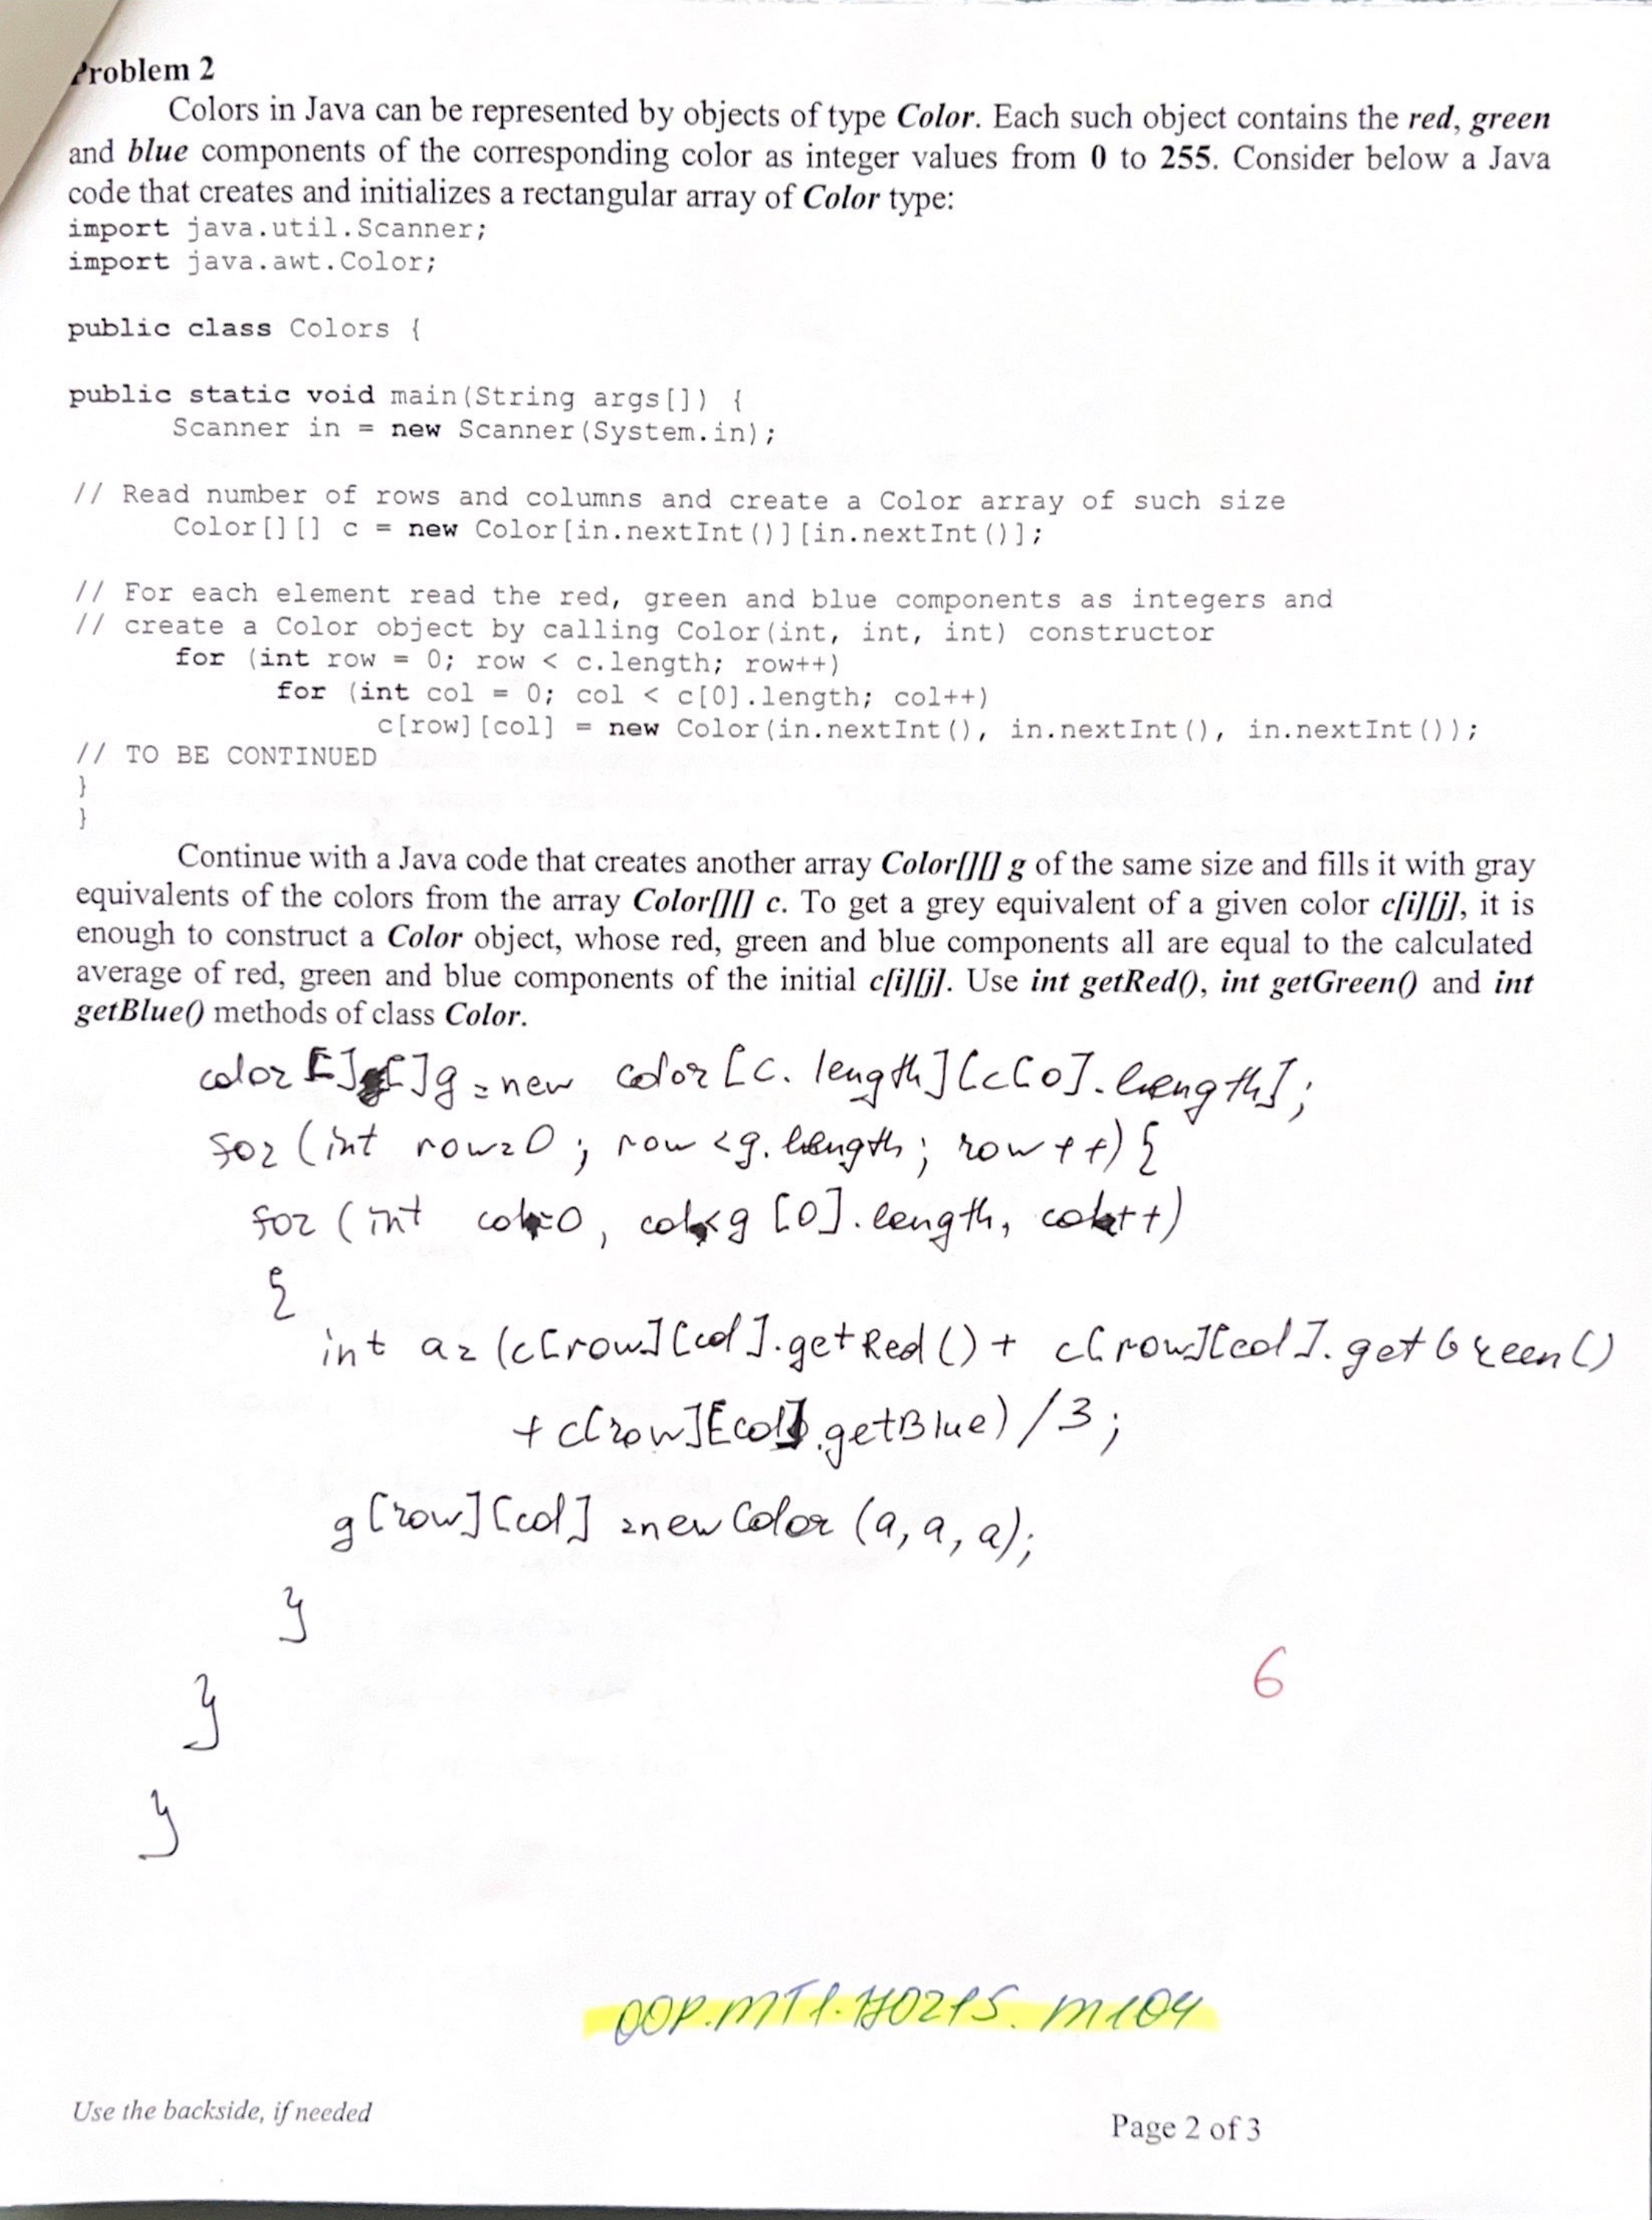 Problem 2
Colors in Java can be represented by objects of type Color. Each such object contains the red, green
and blue components of the corresponding color as integer values from 0 to 255. Consider below a Java
code that creates and initializes a rectangular array of Color type:
import java.util.Scanner;
import java.awt.Color;
public class Colors {
public static void main(String args[]) {
Scanner in = new Scanner(System.in);
// Read number of rows and columns and create a Color array of such size
Color[][] c = new Color[in.nextInt()][in.nextInt()];
// For each element read the red, green and blue components as integers and
// create a Color object by calling Color(int, int, int) constructor
for (int row = 0; row < c.length; row++)
for (int col = 0; col < c[0].length; col++)
c[row][col] = new Color(in.nextInt(), in.nextInt(), in.nextInt());
// TO BE CONTINUED
}
}
Continue with a Java code that creates another array Color[][] g of the same size and fills it with gray
equivalents of the colors from the array Color[][] c. To get a grey equivalent of a given color c[i][j], it is
enough to construct a Color object, whose red, green and blue components all are equal to the calculated
average of red, green and blue components of the initial c[i][j]. Use int getRed(), int getGreen() and int
getBlue() methods of class Color.
color [][]g = new color [c. length][c[0]. length];
for (int row=0; row <g. length; row++) {
for (int col=0, col<g [0]. length, col++)
{
int a= (c[row][col].getRed()+ c[row][col].getGreen()
+ c[row][col].getBlue) /3;
g[row][col] =new Color (a, a, a);
}
6
}
}
OOP.MT1.170215.M104
Use the backside, if needed
Page 2 of 3